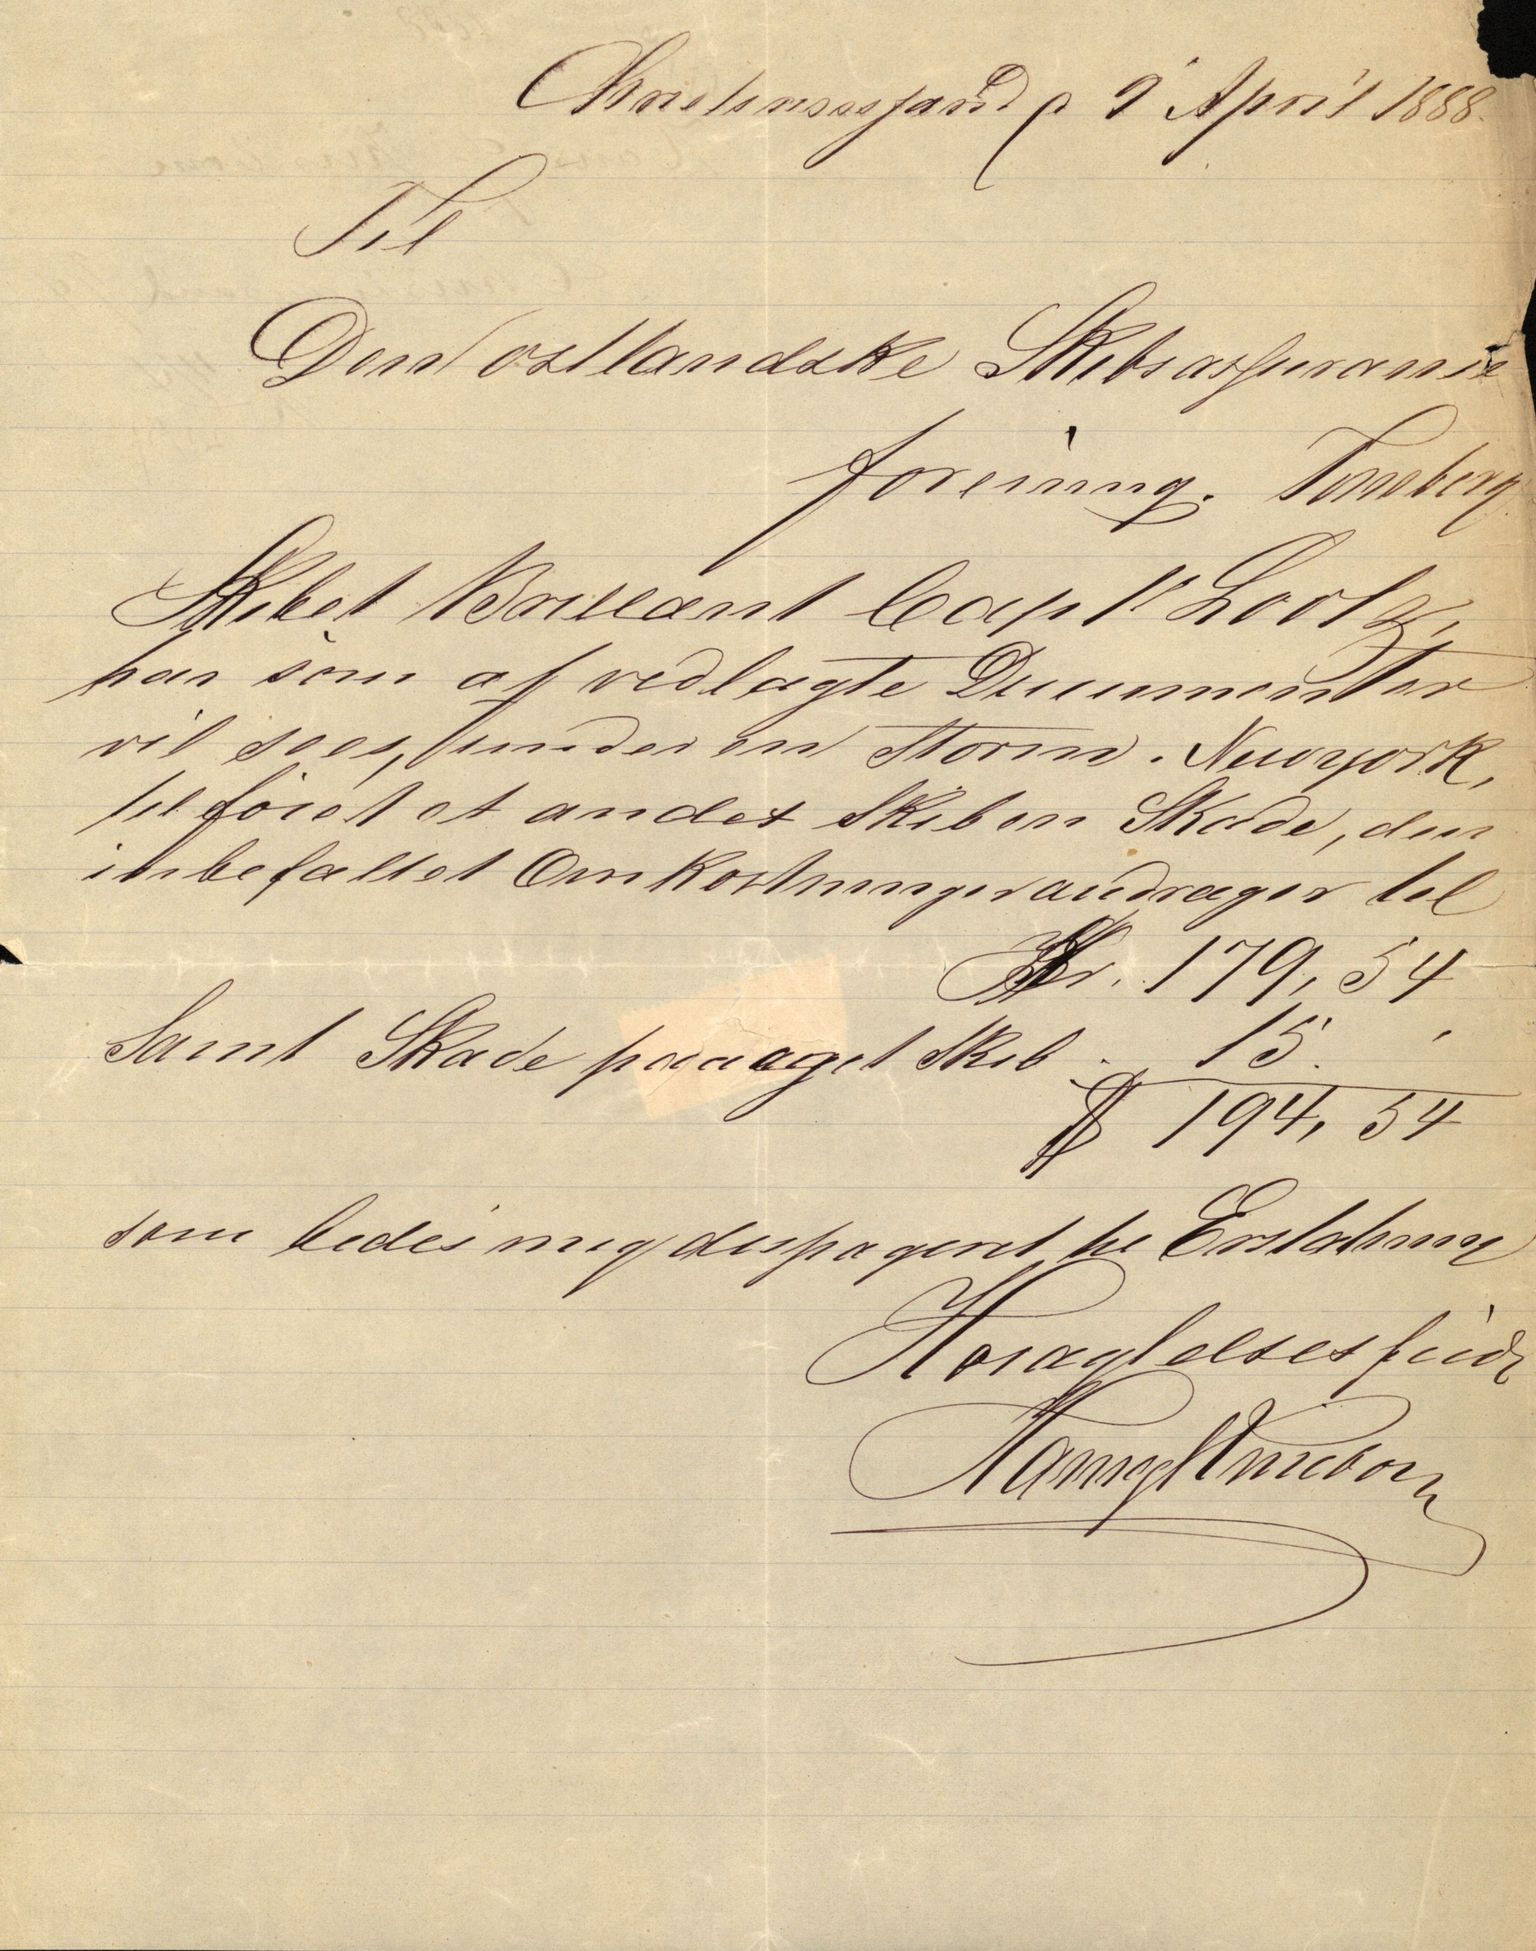 Christianssand d 9 April 1888.
Til
Den ostlandske Skibsassurance
forening. Tønsberg
Skibet Brillant Capt Lootz,
har som af vedlagte Documenter
vil sees, under en Storm. Newyork,
tilføiet et andet Skib en Skade, der
inbefattet Omkostninger andrager til
Kr. 179,54
Samt Skade paa aget Skib . 15.
$ 194,54
som bedes mig dispageret til Erstatning
Høiagtelsesfuldt